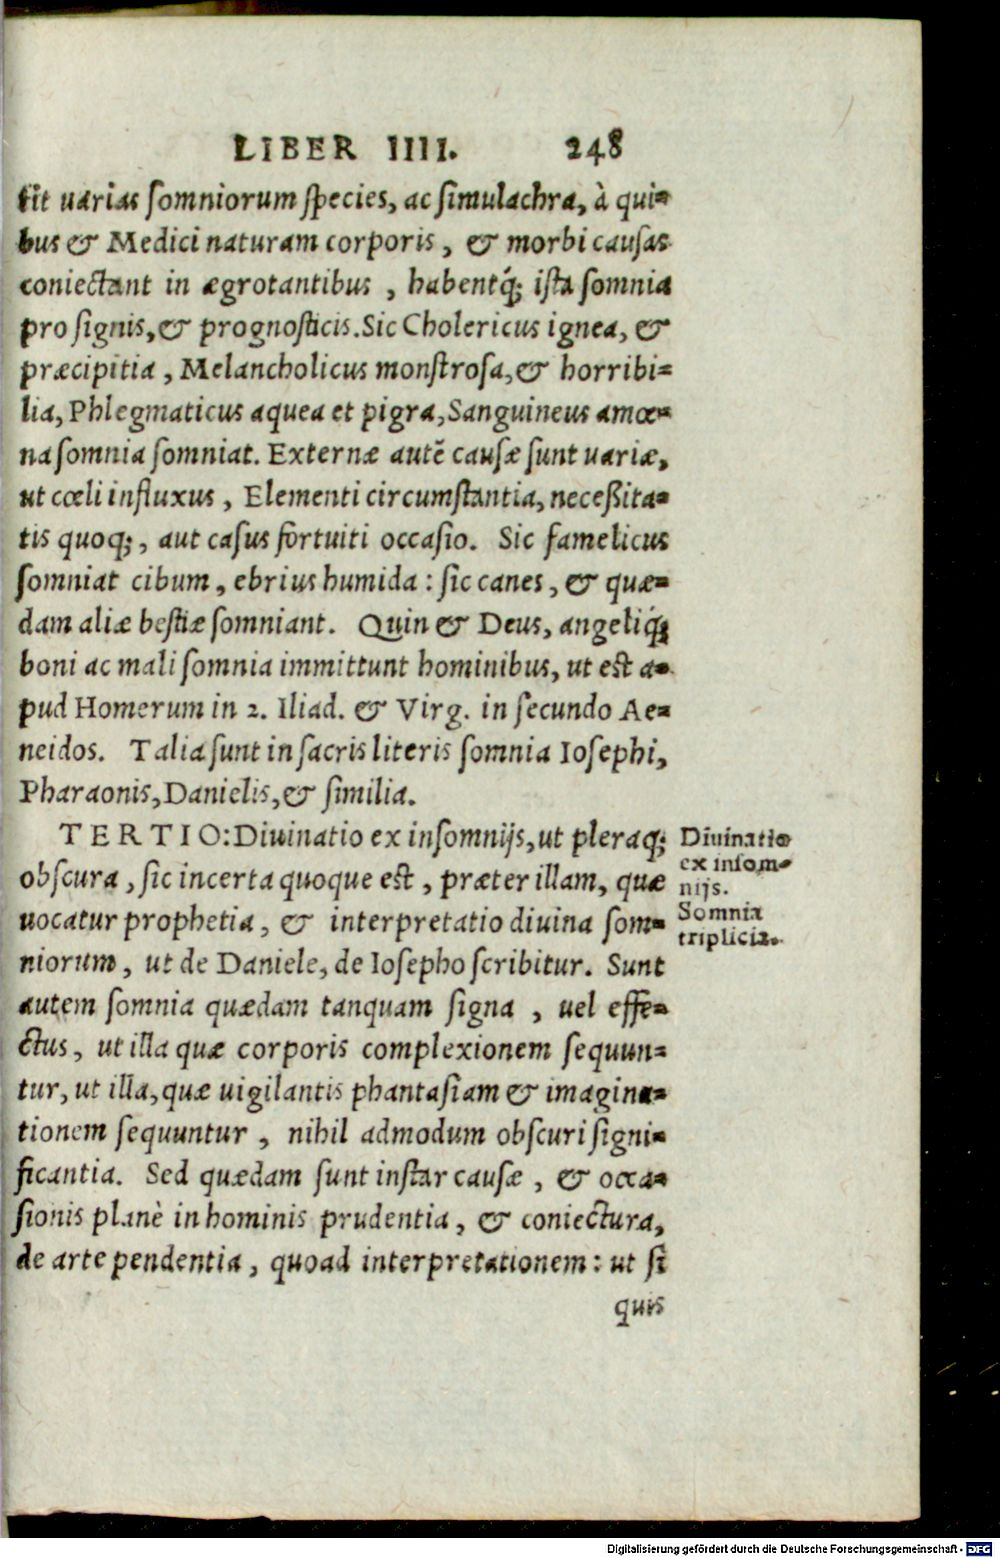 LIBER IIII. 248
tit uarias somniorum species, ac simulachra, à qui=
bus & Medici naturam corporis, & morbi causas
coniectant in ægrotantibus, habentq́; ista somnia
pro signis, & prognosticis. Sic Cholericus ignea, &
præcipitia, Melancholicus monstrosa, & horribi=
lia, Phlegmaticus aquea et pigra, Sanguineus amœ=
na somnia somniat. Externæ autē causæ sunt uariæ,
ut cœli influxus, Elementi circumstantia, neceßita=
tis quoq;, aut casus fortuiti occasio. Sic famelicus
somniat cibum, ebrius humida: sic canes, & quæ=
dam aliæ bestiæ somniant. Quin & Deus, angeliq́;
boni ac mali somnia immittunt hominibus, ut est a=
pud Homerum in 2. Iliad. & Virg. in secundo Ae=
neidos. Talia sunt in sacris literis somnia Iosephi,
Pharaonis, Danielis, & similia.
TERTIO: Diuinatio ex insomnijs, ut pleraq;
obscura, sic incerta quoque est, præter illam, quæ
uocatur prophetia, & interpretatio diuina som=
niorum, ut de Daniele, de Iosepho scribitur. Sunt
autem somnia quædam tanquam signa, uel effe=
ctus, ut illa quæ corporis complexionem sequun=
tur, ut illa, quæ uigilantis phantasiam & imagina=
tionem sequuntur, nihil admodum obscuri signi=
ficantia. Sed quædam sunt instar causæ, & occa=
sionis planè in hominis prudentia, & coniectura,
de arte pendentia, quoad interpretationem: ut si
quis
Diuinatio
ex insom=
nijs.
Somnia
triplicia.
Digitalisierung gefördert durch die Deutsche Forschungsgemeinschaft - DFG